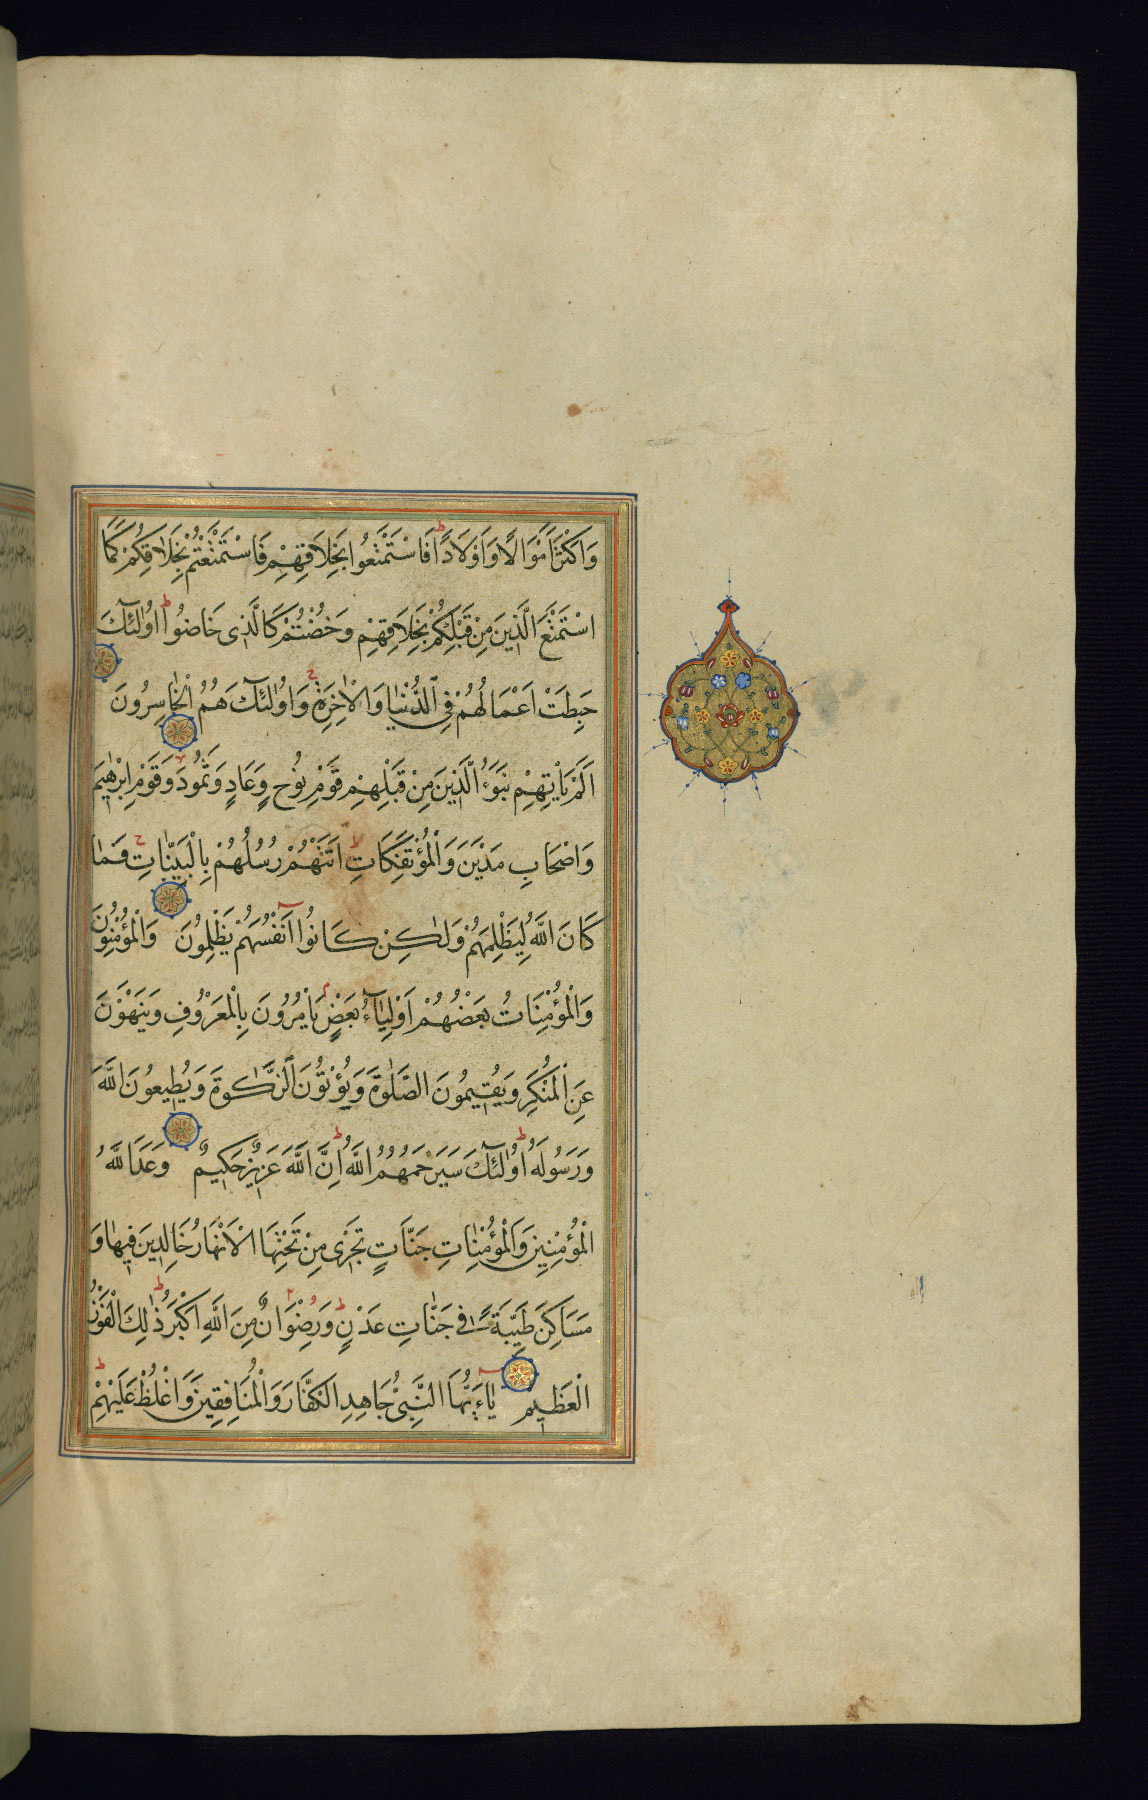 وَاَكْثَرَ اَمْوَالًا وَاَوْلَادًا فَاسْتَمْتَعُوا بِخَلَاقِهِمْ فَاسْتَمْتَعْتُمْ بِخَلَاقِكُمْ كَمَا
اسْتَمْتَعَ الَّذِينَ مِنْ قَبْلِكُمْ بِخَلَاقِهِمْ وَخُضْتُمْ كَالَّذِى خَاضُوا اُولٰئِكَ
حَبِطَتْ اَعْمَالُهُمْ فِى الدُّنْيَا وَالْاٰخِرَةِ وَاُولٰئِكَ هُمُ الْخَاسِرُونَ
اَلَمْ يَاْتِهِمْ نَبَؤُ الَّذِينَ مِنْ قَبْلِهِمْ قَوْمِ نُوحٍ وَعَادٍ وَثَمُودَ وَقَوْمِ اِبْرٰهِيمَ
وَاصْحَابِ مَدْيَنَ وَالْمُؤْتَفِكَاتِ اَتَتْهُمْ رُسُلُهُمْ بِالْبَيِّنَاتِ فَمَا
كَانَ اللّٰهُ لِيَظْلِمَهُمْ وَلٰكِنْ كَانُوا اَنْفُسَهُمْ يَظْلِمُونَ وَالْمُؤْمِنُونَ
وَالْمُؤْمِنَاتُ بَعْضُهُمْ اَوْلِيَاۤءُ بَعْضٍ يَاْمُرُونَ بِالْمَعْرُوفِ وَيَنْهَوْنَ
عَنِ الْمُنْكَرِ وَيُقِيمُونَ الصَّلٰوةَ وَيُؤْتُونَ الزَّكٰوةَ وَيُطِيعُونَ اللّٰهَ
وَرَسُولَهُ اُولٰئِكَ سَيَرْحَمُهُمُ اللّٰهُ اِنَّ اللّٰهَ عَزِيزٌ حَكِيمٌ وَعَدَ اللّٰهُ
الْمُؤْمِنِينَ وَالْمُؤْمِنَاتِ جَنَّاتٍ تَجْرِى مِنْ تَحْتِهَا الْاَنْهَارُ خَالِدِينَ فِيهَا وَ
مَسَاكِنَ طَيِّبَةً فِى جَنَّاتِ عَدْنٍ وَرِضْوَانٌ مِنَ اللّٰهِ اَكْبَرُ ذٰلِكَ الْفَوْزُ
الْعَظِيمُ يَاۤءَيُّهَا النَّبِىُّ جَاهِدِ الْكُفَّارَ وَالْمُنَافِقِينَ وَاغْلُظْ عَلَيْهِمْ